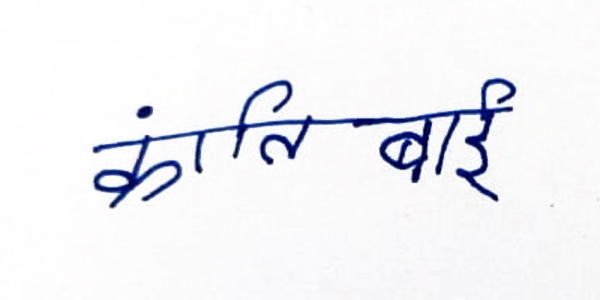 कांति बाई